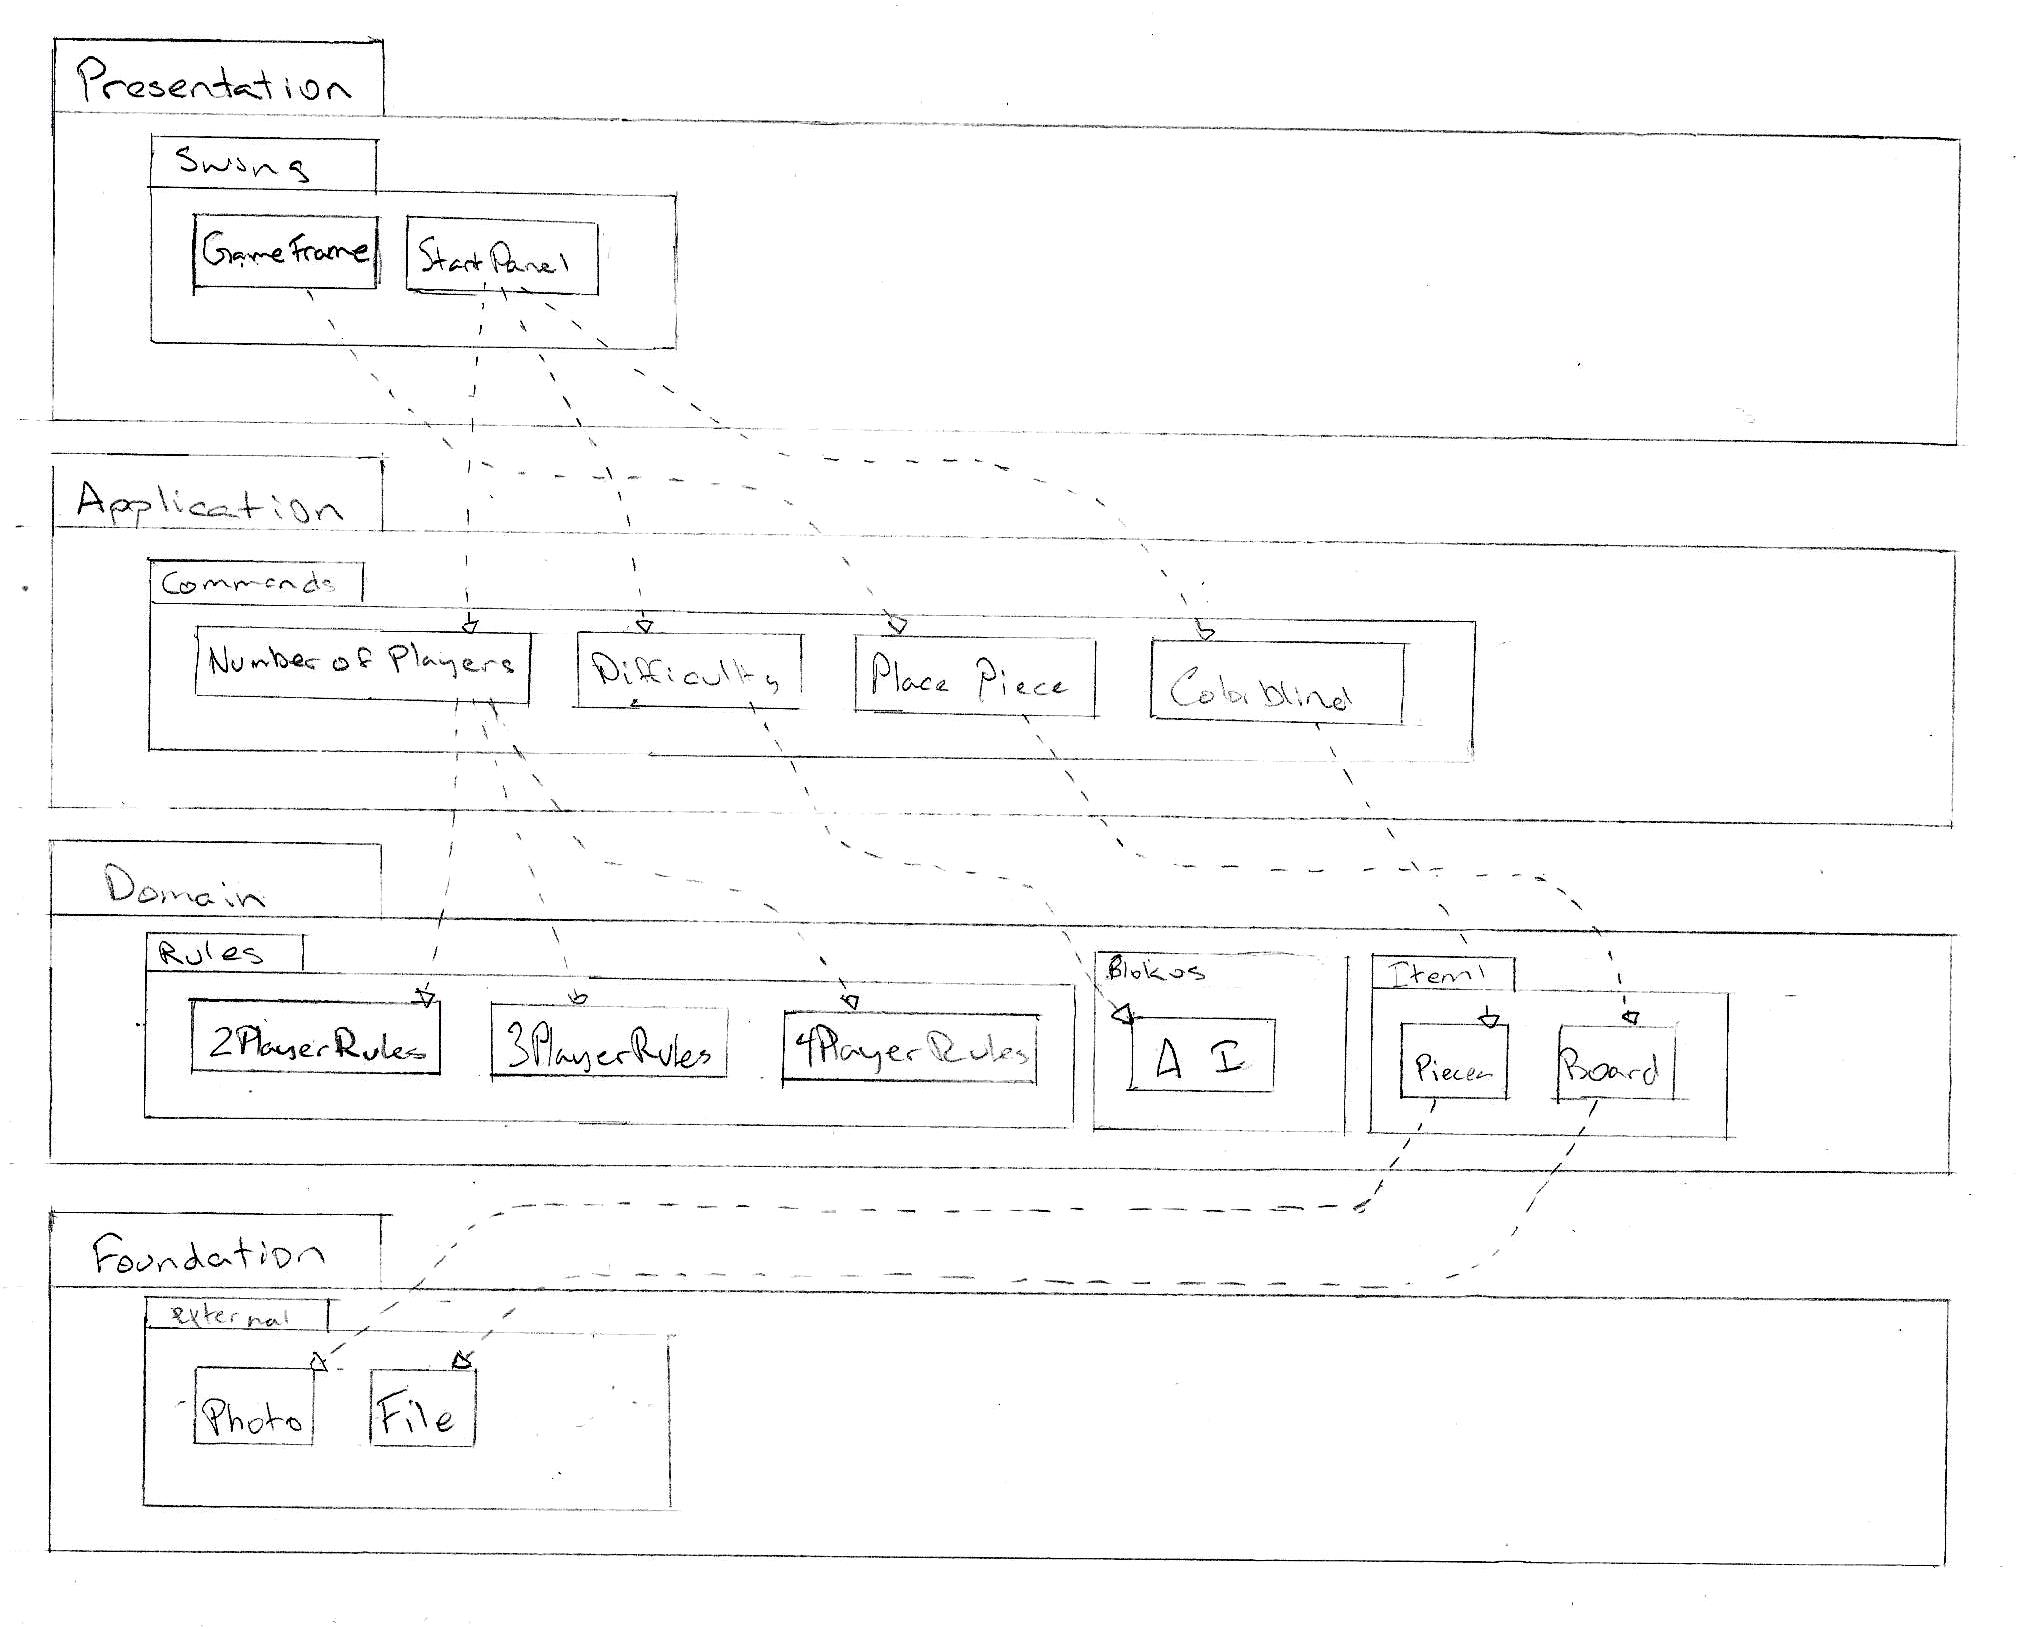 Presentation
Swing
GameFrame
StartPanel
Application
Commands
Number of Players
Difficulty
Place Piece
Colorblind
Domain
Rules
Blokus
2PlayerRules
3PlayerRules
4PlayerRules
AI
Board
Foundation
external
Photo
File